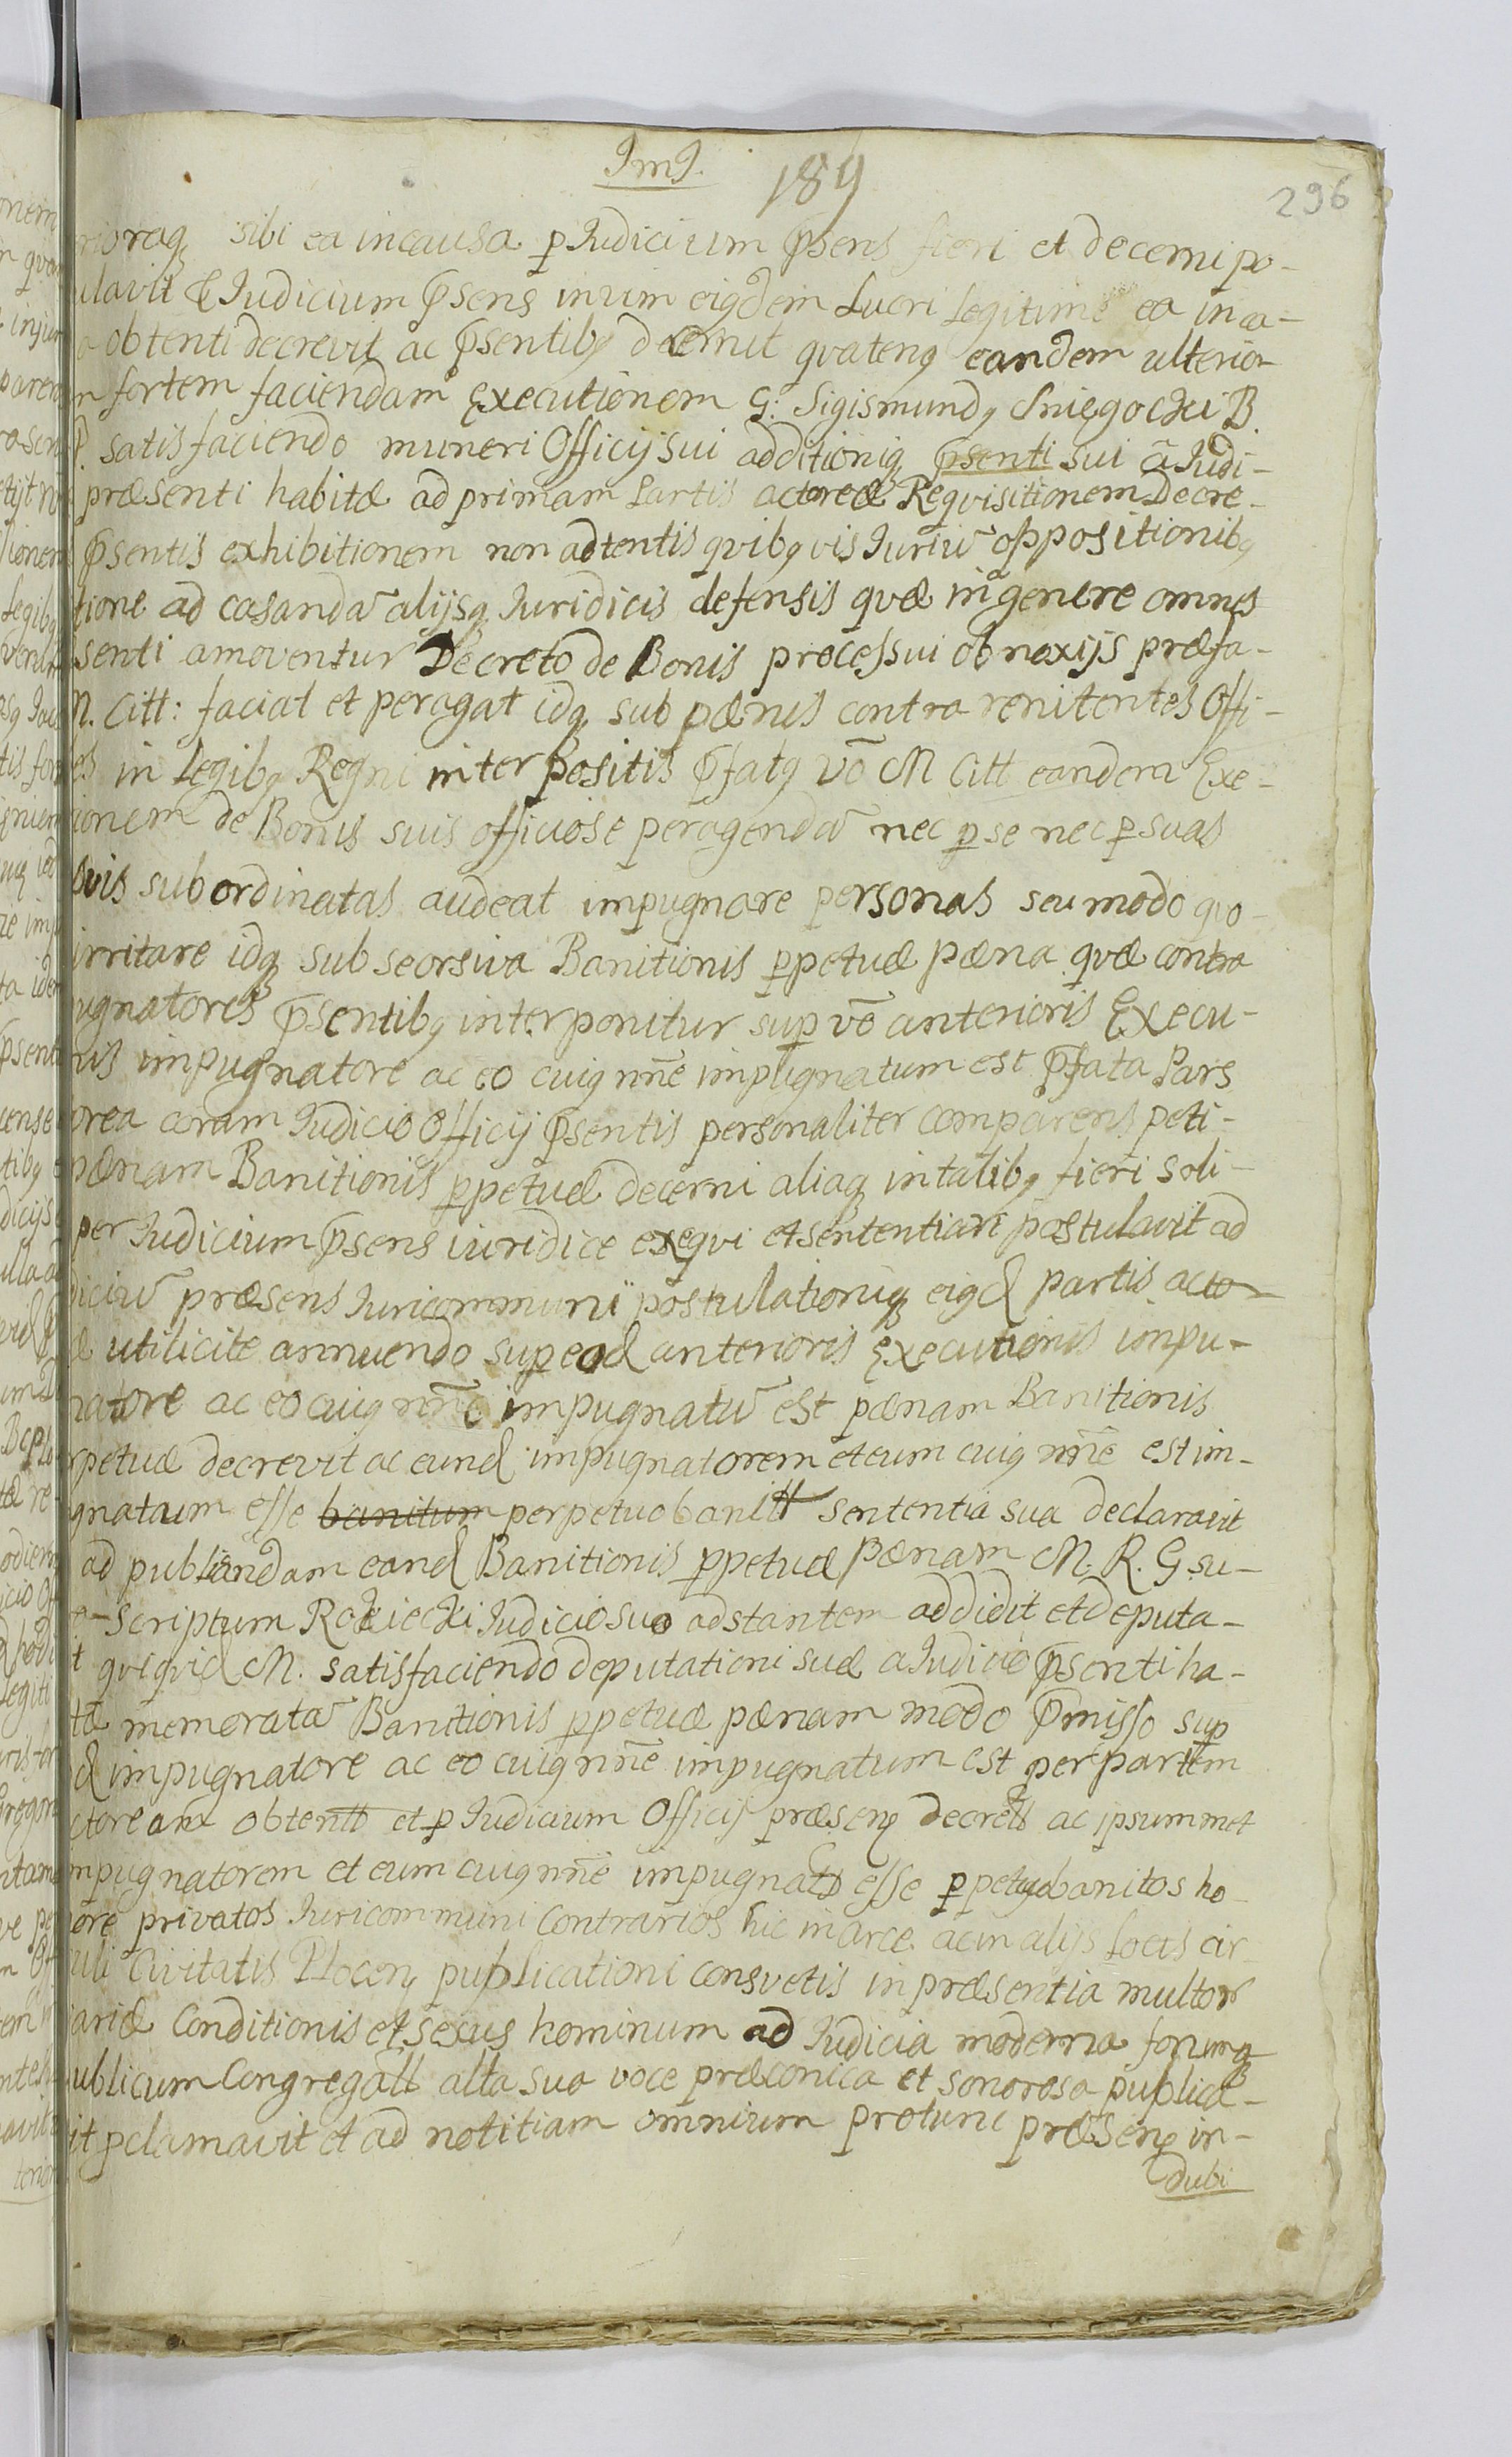 ImJ.
189
296
rioraq sibi ea in causa p Iudicium psens fieri et decerni po-
ulavit & Iudicium psens in vim eiqdem Lucri Legitime ea in ca-
obtenti decrevit ac psentibq decernit qvatenq eandem ulterior
n fortem faciendam Executionem G: Sigismundq Sniegocki B.
P. satisfaciendo muneri Officij sui additioniq psenti sui a Iudi-
præsenti habitæ ad primam Partis actoreæ Reqvisitionem Decre-
psentis exhibitionem non adtentis qvibqvis Iuriū oppositionibq
tione ad casandā alijsq Iuridicis defensis qvæ in genere omnes
senti amoventur Decreto de Bonis processui obnoxijs præfa-
N. Citt: faciat et peragat idq sub pænis contra renitentes Offi-
es in Legibq Regni interpositis pfatq vō M Citt eandem Exe-
ionem de Bonis suis officiose peragendā nec p se nec p suas
svis subordinatas audeat impugnare personas seu modo qvo-
irritare idq sub seorsiva Banitionis ppetuæ pæna qvæ contra
ugnatores psentibq interponitur sup vō anterioris Execu-
nis impugnatore ac eo cuiq nñe impugnatum est pfata Pars
orea coram Iudicio Officij psentis personaliter comparens peti-
pænam Banitionis ppetuæ decerni aliaq in talibq fieri soli-
per Iudicium psens iuridice exeqvi et sententiari postulavit ad
diciū præsens Iuri communi postulationiq eiqd partis acto-
æ utilicite annuendo sup eod anterioris Executionis impu-
natore ac eo cuiq nñe impugnatū est pænam Banitionis
rpetuæ decrevit ac eund impugnatorem et eum cuiq nñe est im-
gnatum esse banitum perpetuo banitt sententia sua declaravit
ad publicandam eand Banitionis ppetuæ Pænam M. R. G. su-
a-scriptum Rokicki Iudicio suo adstantem addidit et deputa-
t qviqvid M. satisfaciendo deputationi suæ a Iudicio psenti ha-
tæ memoratā Banitionis ppetuæ pænam modo pmisso sup
d impugnatore ac eo cuiq nñe impugnatum est per partem
ctoream obtentt et p Iudicium Officij præsenq decrett ac ipsummet
mpugnatorem et eum cuiq nñe impugnatt esse ppetuo banitos ho-
nore privatos Iuri communi Contrarios hic in arce ac in alijs Locis cir-
uli Civitatis Plocenq publicationi consvetis in præsentia multor
ariæ Conditionis et sexus hominum ad Iudicia moderna forumq
ublicum Congregatt alta sua voce præconica et sonorosa publica-
it pclamavit et ad notitiam omnium protunc præsenq in-
dubi